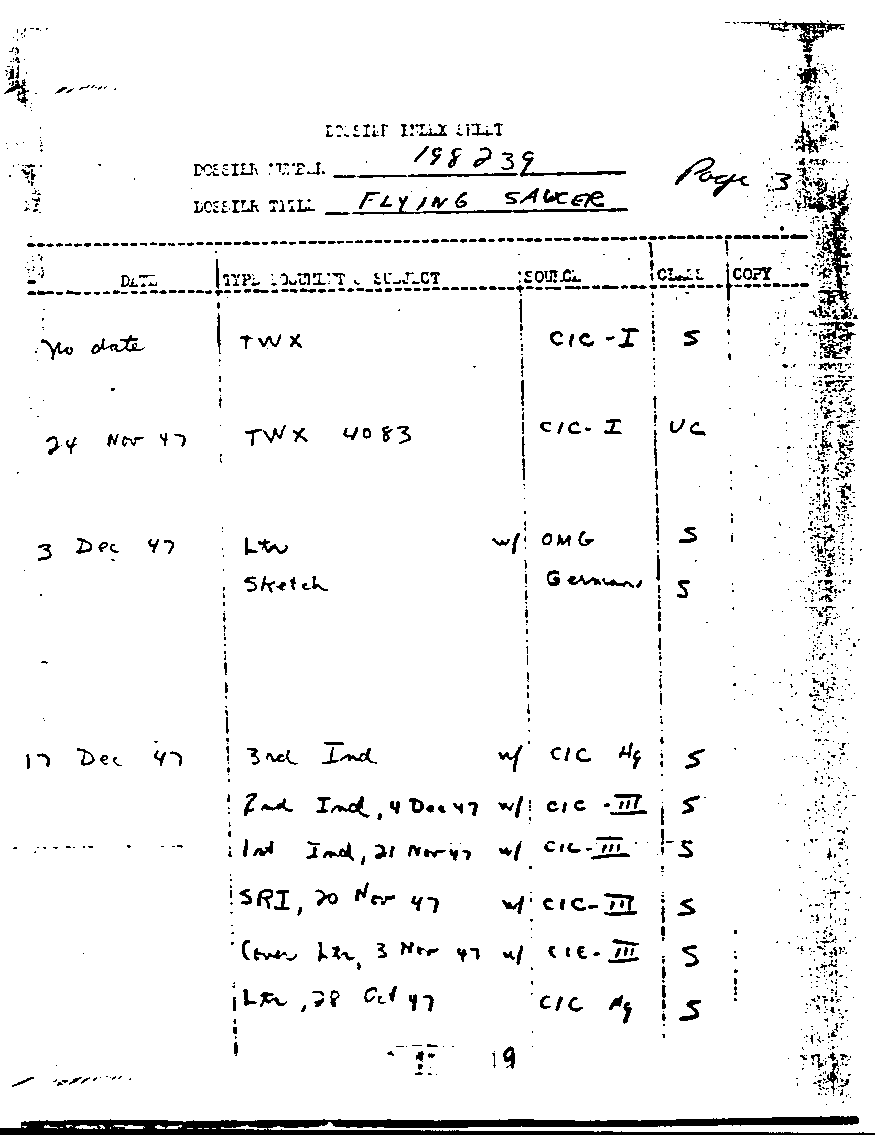 DOSSIER INDEX SHEET
DOSSIER NUMBER 198239
Page 3
DOSSIER TITLE FLYING SAUCER
DATE TYPE DOCUMENT & SUBJECT SOURCE CLASS COPY
No date TWX CIC-I S
24 Nov 47 TWX 4083 CIC-I UC
3 Dec 47 Ltr w/ OMG S
Sketch Germans S
17 Dec 47 3rd Ind w/ CIC Hq S
2nd Ind, 4 Dec 47 w/ CIC-III S
1st Ind, 21 Nov 47 w/ CIC-III S
SRI, 20 Nov 47 w/ CIC-III S
Cover Ltr, 3 Nov 47 w/ CIC-III S
Ltr, 28 Oct 47 CIC Hq S
19